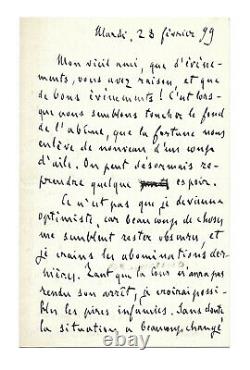 Mardi, 28 février 99
Mon vieil ami, que d'événe-
ments, vous avez raison, et que
de bons événements ! C'est lors-
que nous semblons toucher le fond
de l'abîme, que la fortune nous
enlève de nouveau d'un coup
d'aile. On peut désormais re-
prendre quelque espoir.
Ce n'est pas que je devienne
optimiste, car beaucoup de choses
me semblent rester obscures, et
je crains les abominations der-
nières. Tant que la Cour n'aura pas
rendu son arrêt, je croirai possi-
bles les pires infamies. Sans doute
la situation a beaucoup changé
© hakve.com